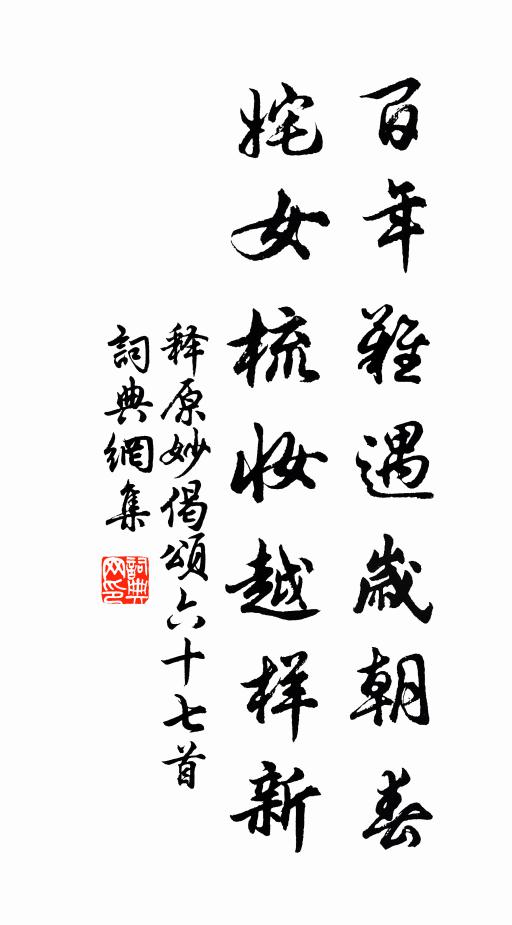 百年難遇歲朝春
姹女梳妝越樣新
釋原妙偈頌六十七首
詞典網集
詞典網印